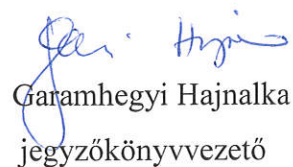 Garamhegyi Hajnalka
jegyzőkönyvvezető